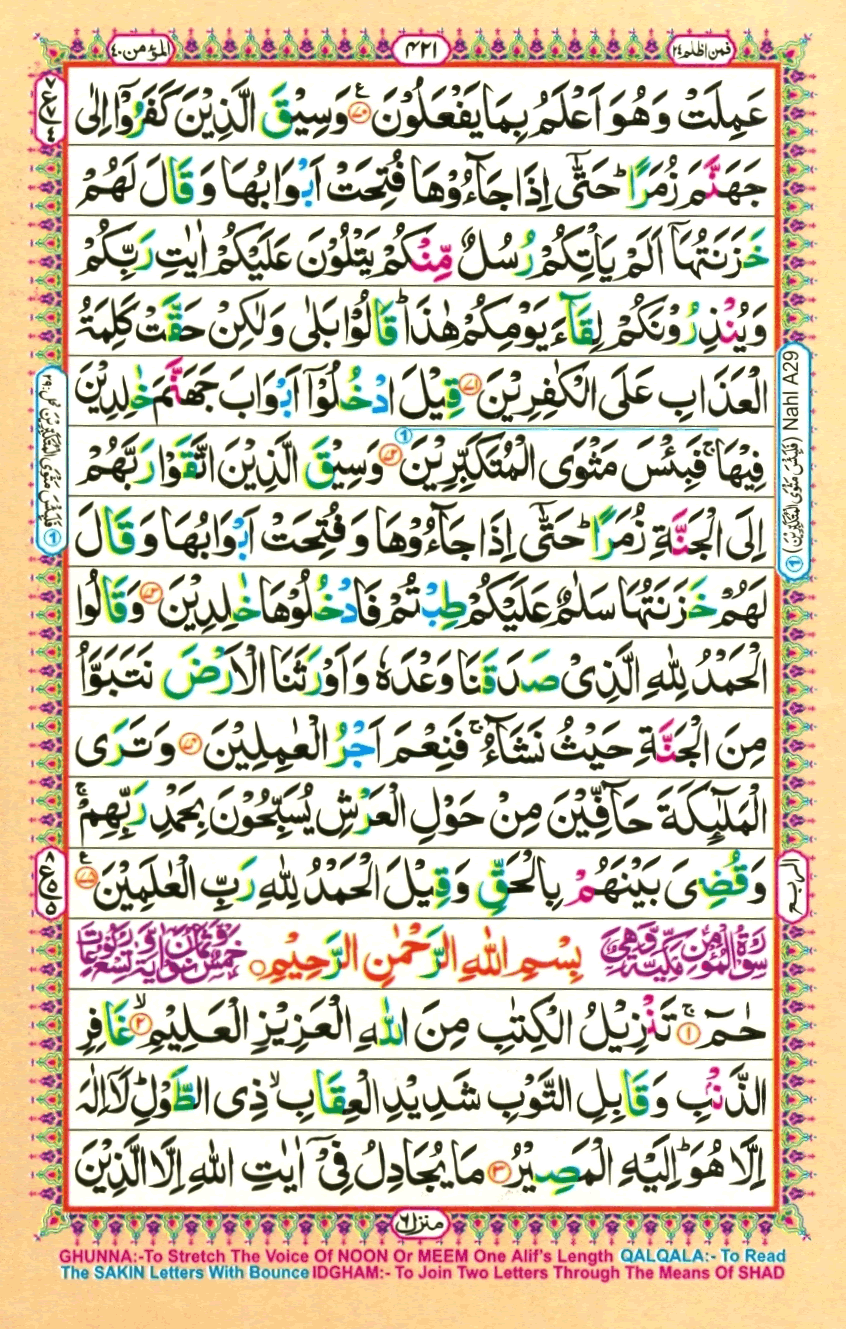 المؤمن ٤٠
٤٢١
فمن اظلم ٢٤
عَمِلَتْ وَهُوَ اَعْلَمُ بِمَا يَفْعَلُوْنَ ﴿٧٠﴾ وَسِيْقَ الَّذِيْنَ كَفَرُوْۤا اِلٰى
جَهَنَّمَ زُمَرًاؕ حَتّٰۤى اِذَا جَآءُوْهَا فُتِحَتْ اَبْوَابُهَا وَقَالَ لَهُمْ
خَزَنَتُهَاۤ اَلَمْ يَاْتِكُمْ رُسُلٌ مِّنْكُمْ يَتْلُوْنَ عَلَيْكُمْ اٰيٰتِ رَبِّكُمْ
وَيُنْذِرُوْنَكُمْ لِقَآءَ يَوْمِكُمْ هٰذَاؕ قَالُوْا بَلٰى وَلٰكِنْ حَقَّتْ كَلِمَةُ
الْعَذَابِ عَلَى الْكٰفِرِيْنَ ﴿٧١﴾ قِيْلَ ادْخُلُوْۤا اَبْوَابَ جَهَنَّمَ خٰلِدِيْنَ
فِيْهَاۚ فَبِئْسَ مَثْوَى الْمُتَكَبِّرِيْنَ ﴿٧٢﴾ وَسِيْقَ الَّذِيْنَ اتَّقَوْا رَبَّهُمْ
اِلَى الْجَنَّةِ زُمَرًاؕ حَتّٰۤى اِذَا جَآءُوْهَا وَفُتِحَتْ اَبْوَابُهَا وَقَالَ
لَهُمْ خَزَنَتُهَا سَلٰمٌ عَلَيْكُمْ طِبْتُمْ فَادْخُلُوْهَا خٰلِدِيْنَ ﴿٧٣﴾ وَقَالُوا
الْحَمْدُ لِلّٰهِ الَّذِىْ صَدَقَنَا وَعْدَهٗ وَاَوْرَثَنَا الْاَرْضَ نَتَبَوَّاُ
مِنَ الْجَنَّةِ حَيْثُ نَشَآءُۚ فَنِعْمَ اَجْرُ الْعٰمِلِيْنَ ﴿٧٤﴾ وَتَرَى
الْمَلٰٓئِكَةَ حَآفِّيْنَ مِنْ حَوْلِ الْعَرْشِ يُسَبِّحُوْنَ بِحَمْدِ رَبِّهِمْۚ
وَقُضِىَ بَيْنَهُمْ بِالْحَقِّ وَقِيْلَ الْحَمْدُ لِلّٰهِ رَبِّ الْعٰلَمِيْنَ ﴿٧٥﴾
سورة المؤمن مكية وهي
بِسْمِ اللّٰهِ الرَّحْمٰنِ الرَّحِيْمِ
خمس وثمانون اية وتسع ركوعات
حٰمٓۚ ﴿١﴾ تَنْزِيْلُ الْكِتٰبِ مِنَ اللّٰهِ الْعَزِيْزِ الْعَلِيْمِۙ ﴿٢﴾ غَافِرِ
الذَّنْۢبِ وَقَابِلِ التَّوْبِ شَدِيْدِ الْعِقَابِۙ ذِى الطَّوْلِؕ لَاۤ اِلٰهَ
اِلَّا هُوَؕ اِلَيْهِ الْمَصِيْرُ ﴿٣﴾ مَا يُجَادِلُ فِىْۤ اٰيٰتِ اللّٰهِ اِلَّا الَّذِيْنَ
Nahl A29 (فَلَبِئْسَ مَثْوَى الْمُتَكَبِّرِيْنَ) ①
① فَلَبِئْسَ مَثْوَى الْمُتَكَبِّرِيْنَ نحل:٢٩
الربع
منزل ٦
GHUNNA:-To Stretch The Voice Of NOON Or MEEM One Alif's Length QALQALA:- To Read
The SAKIN Letters With Bounce IDGHAM:- To Join Two Letters Through The Means Of SHAD